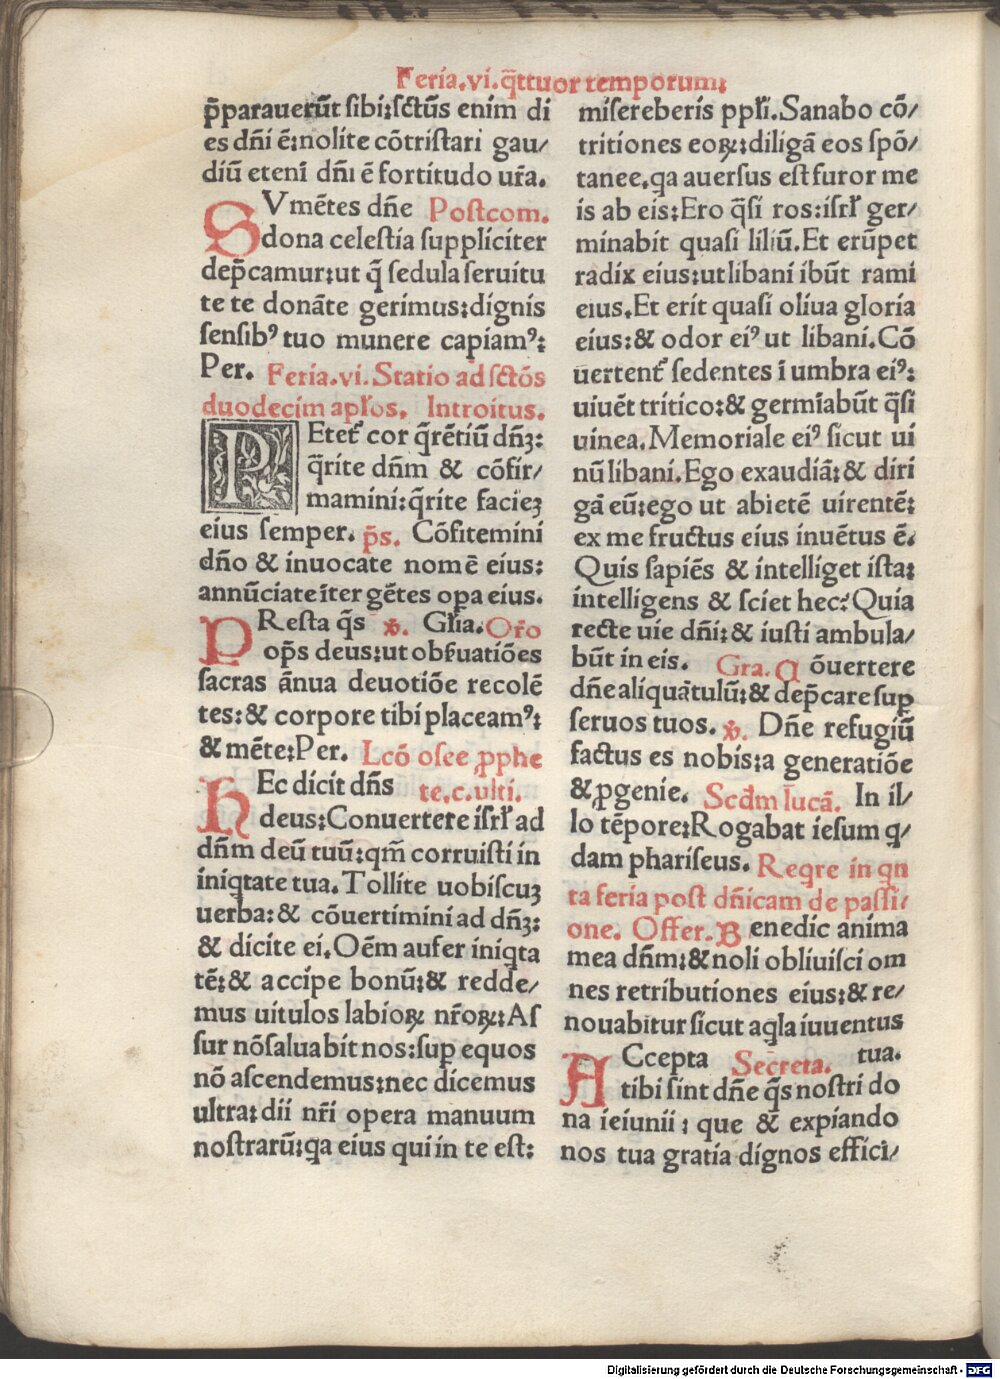 Feria.vi.q̄ttuor temporum:
p̄parauerūt sibi:sctūs enim di
es dn̄i ē:nolite cōtristari gau/
diū etenī dn̄i ē fortitudo ur̄a.
SVmētes dn̄e Postcom.
dona celestia suppliciter
dep̄camur:ut q̄ sedula seruitu
te te donāte gerimus:dignis
sensibꝰ tuo munere capiamꝰ:
Per. Feria.vi.Statio ad sctōs
duodecim apłos. Introitus.
PEtet̄ cor q̄rētiū dn̄ꝫ:
q̄rite dn̄m & cōfir/
mamini:q̄rite facieꝫ
eius semper. p̄s. Cōfitemini
dn̄o & inuocate nomē eius:
annūciate īter gētes oꝑa eius.
PResta q̄s ꝟ. Gl̄ia.Or̄o
oп̄s deus:ut obẜuatiōes
sacras ānua deuotiōe recolē
tes:& corpore tibi placeamꝰ:
& mēte:Per. Lcō osee ꝓphe
HEc dicit dn̄s te.c.ulti.
deus:Conuertere isrł ad
dn̄m deū tuū:qm̄ corruisti in
iniqtate tua.Tollite uobiscuꝫ
uerba:& cōuertimini ad dn̄ꝫ:
& dicite ei.Oēm aufer iniqta
tē:& accipe bonū:& redde/
mus uitulos labioꝝ nr̄oꝝ:As
sur nō saluabit nos:suꝑ equos
nō ascendemus:nec dicemus
ultra:dii nr̄i opera manuum
nostrarū:qa eius qui in te est:
misereberis ppłi.Sanabo cō/
tritiones eoꝝ:diligā eos spō/
tanee.qa auersus est furor me
is ab eis:Ero q̄si ros:isrł ger/
minabit quasi liliū.Et erūpet
radix eius:ut libani ibūt rami
eius.Et erit quasi oliua gloria
eius:& odor eiꝰ ut libani.Cō
uertent̄ sedentes ī umbra eiꝰ:
uiuēt tritico:& germīabūt q̄si
uinea.Memoriale eiꝰ sicut ui
nū libani.Ego exaudiā:& diri
gā eū:ego ut abietē uirentē:
ex me fructus eius inuētus ē.
Quis sapiēs & intelliget ista:
intelligens & sciet hec?Quia
recte uie dn̄i:& iusti ambula/
būt in eis. Gra. Cōuertere
dn̄e aliquātulū:& dep̄care suꝑ
seruos tuos.ꝟ. Dn̄e refugiū
factus es nobis:a generatiōe
& ꝓgenie. Scdm̄ lucā. In il/
lo tēpore:Rogabat iesum q/
dam phariseus. Reqre in qn
ta feria post dn̄icam de passi/
one. Offer.Benedic anima
mea dn̄m:& noli obliuisci om
nes retributiones eius:& re/
nouabitur sicut aqla iuuentus
ACcepta Secreta. tua.
tibi sint dn̄e q̄s nostri do
na ieiunii : que & expiando
nos tua gratia dignos effici/
Digitalisierung gefördert durch die Deutsche Forschungsgemeinschaft - DFG